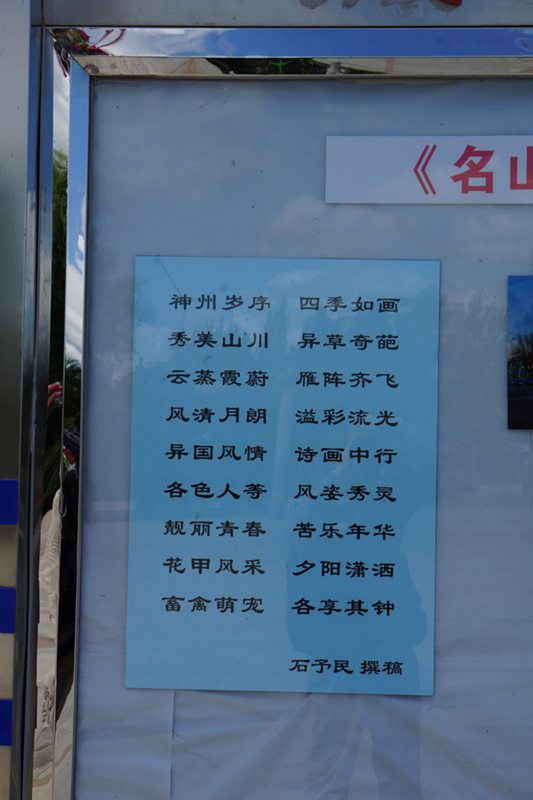 《名山
神州岁序 四季如画
秀美山川 异草奇葩
云蒸霞蔚 雁阵齐飞
风清月朗 溢彩流光
异国风情 诗画中行
各色人等 风姿秀灵
靓丽青春 苦乐年华
花甲风采 夕阳潇洒
畜禽萌宠 各享其钟
石予民 撰稿